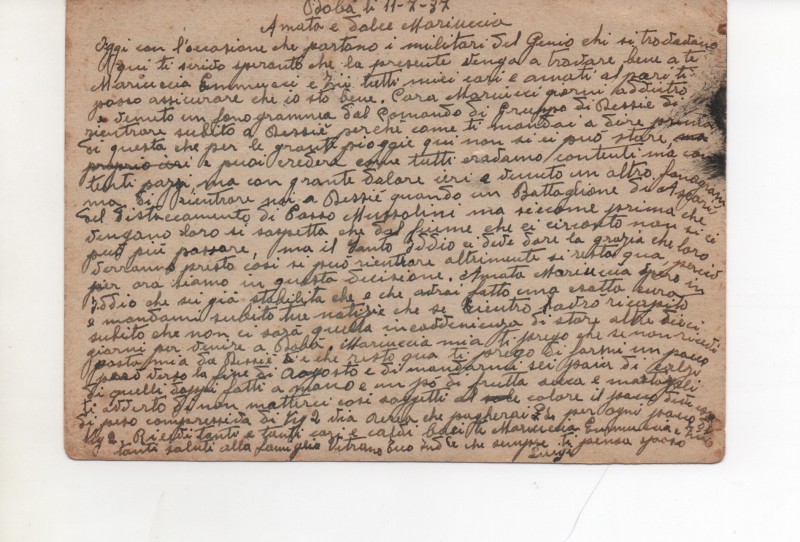 Bobà lì 11-7-37
Amata e dolce Mariuccia
Oggi con l'occasione che partano i militari del Genio chi si trovavano
qui ti scrivo speranto che la presente venga a trovare bene a te
Mariuccia Emmuccia e Zii tutti miei cari e amati al pari ti
posso assicurare che io sto bene. Cara Mariucci giorni addietro
e venuto un fonogramma dal Comando di Gruppo di Dessiè di
rientrare subito a Dessiè perché come ti mandai a dire prima
di questa che per le grante pioggie qui non si ci può stare,
proprio ieri e puoi credera come tutti eravamo contenti ma con
tenti parsi, ma con grante dalore ieri e venuto un altro fonogram
ma di rientrare noi a Dessiè quando un Battaglione di Ascari
del distaccamento di Passo Mussolini ma siccome prima che
vengano loro si sospetta che dal fiume che ci circonta non si ci
può più passare, ma il Santo Iddio ci deve dare la grazia che loro
verranno presto cosi si può rientrare altrimente si resta qua, perciò
per ora siamo in questa decisione. Amata Mariuccia spero in
Iddio che sei già stabilita che e che avrai fatto una esatta cura
e mandami subito tue notizie che se rientro l'avrò ricapito
subito che non ci sarà quella incovenienza di stare altre dieci
giorni per venire a Bobà. Mariuccia mia ti prego che se non ricevi
posta mia da Dessiè è che resto qua ti prego di farmi un pacco
però verso la fine di Agosto e di mandarmi sei paia di calzi
di quelli doppi fatti a mano e un pò di frutta secca e
ti adverto di non metterci così soggetti al calore il pacco
di peso compressiva di Kg 2 via aerea che pagherai per ogni pacco
Kg 2. Ricevi tanti e tanti cari e caldi baci ti Mariuccia Emmuccia e Zii
tanti saluti alla famiglia Vitrano che sempre ti pensa sposo
Luigi